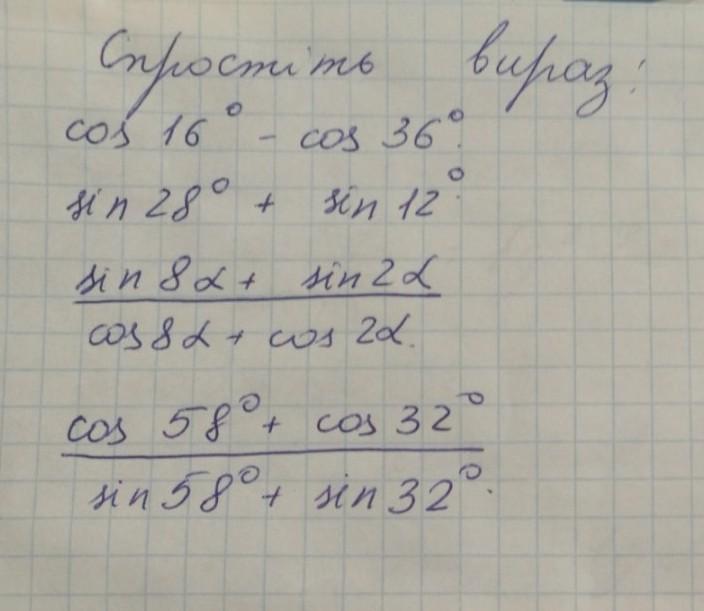 Спростіть вираз:
cos 16° - cos 36°.
sin 28° + sin 12°.
sin 8α + sin 2α
cos 8α + cos 2α.
cos 58° + cos 32°
sin 58° + sin 32°.